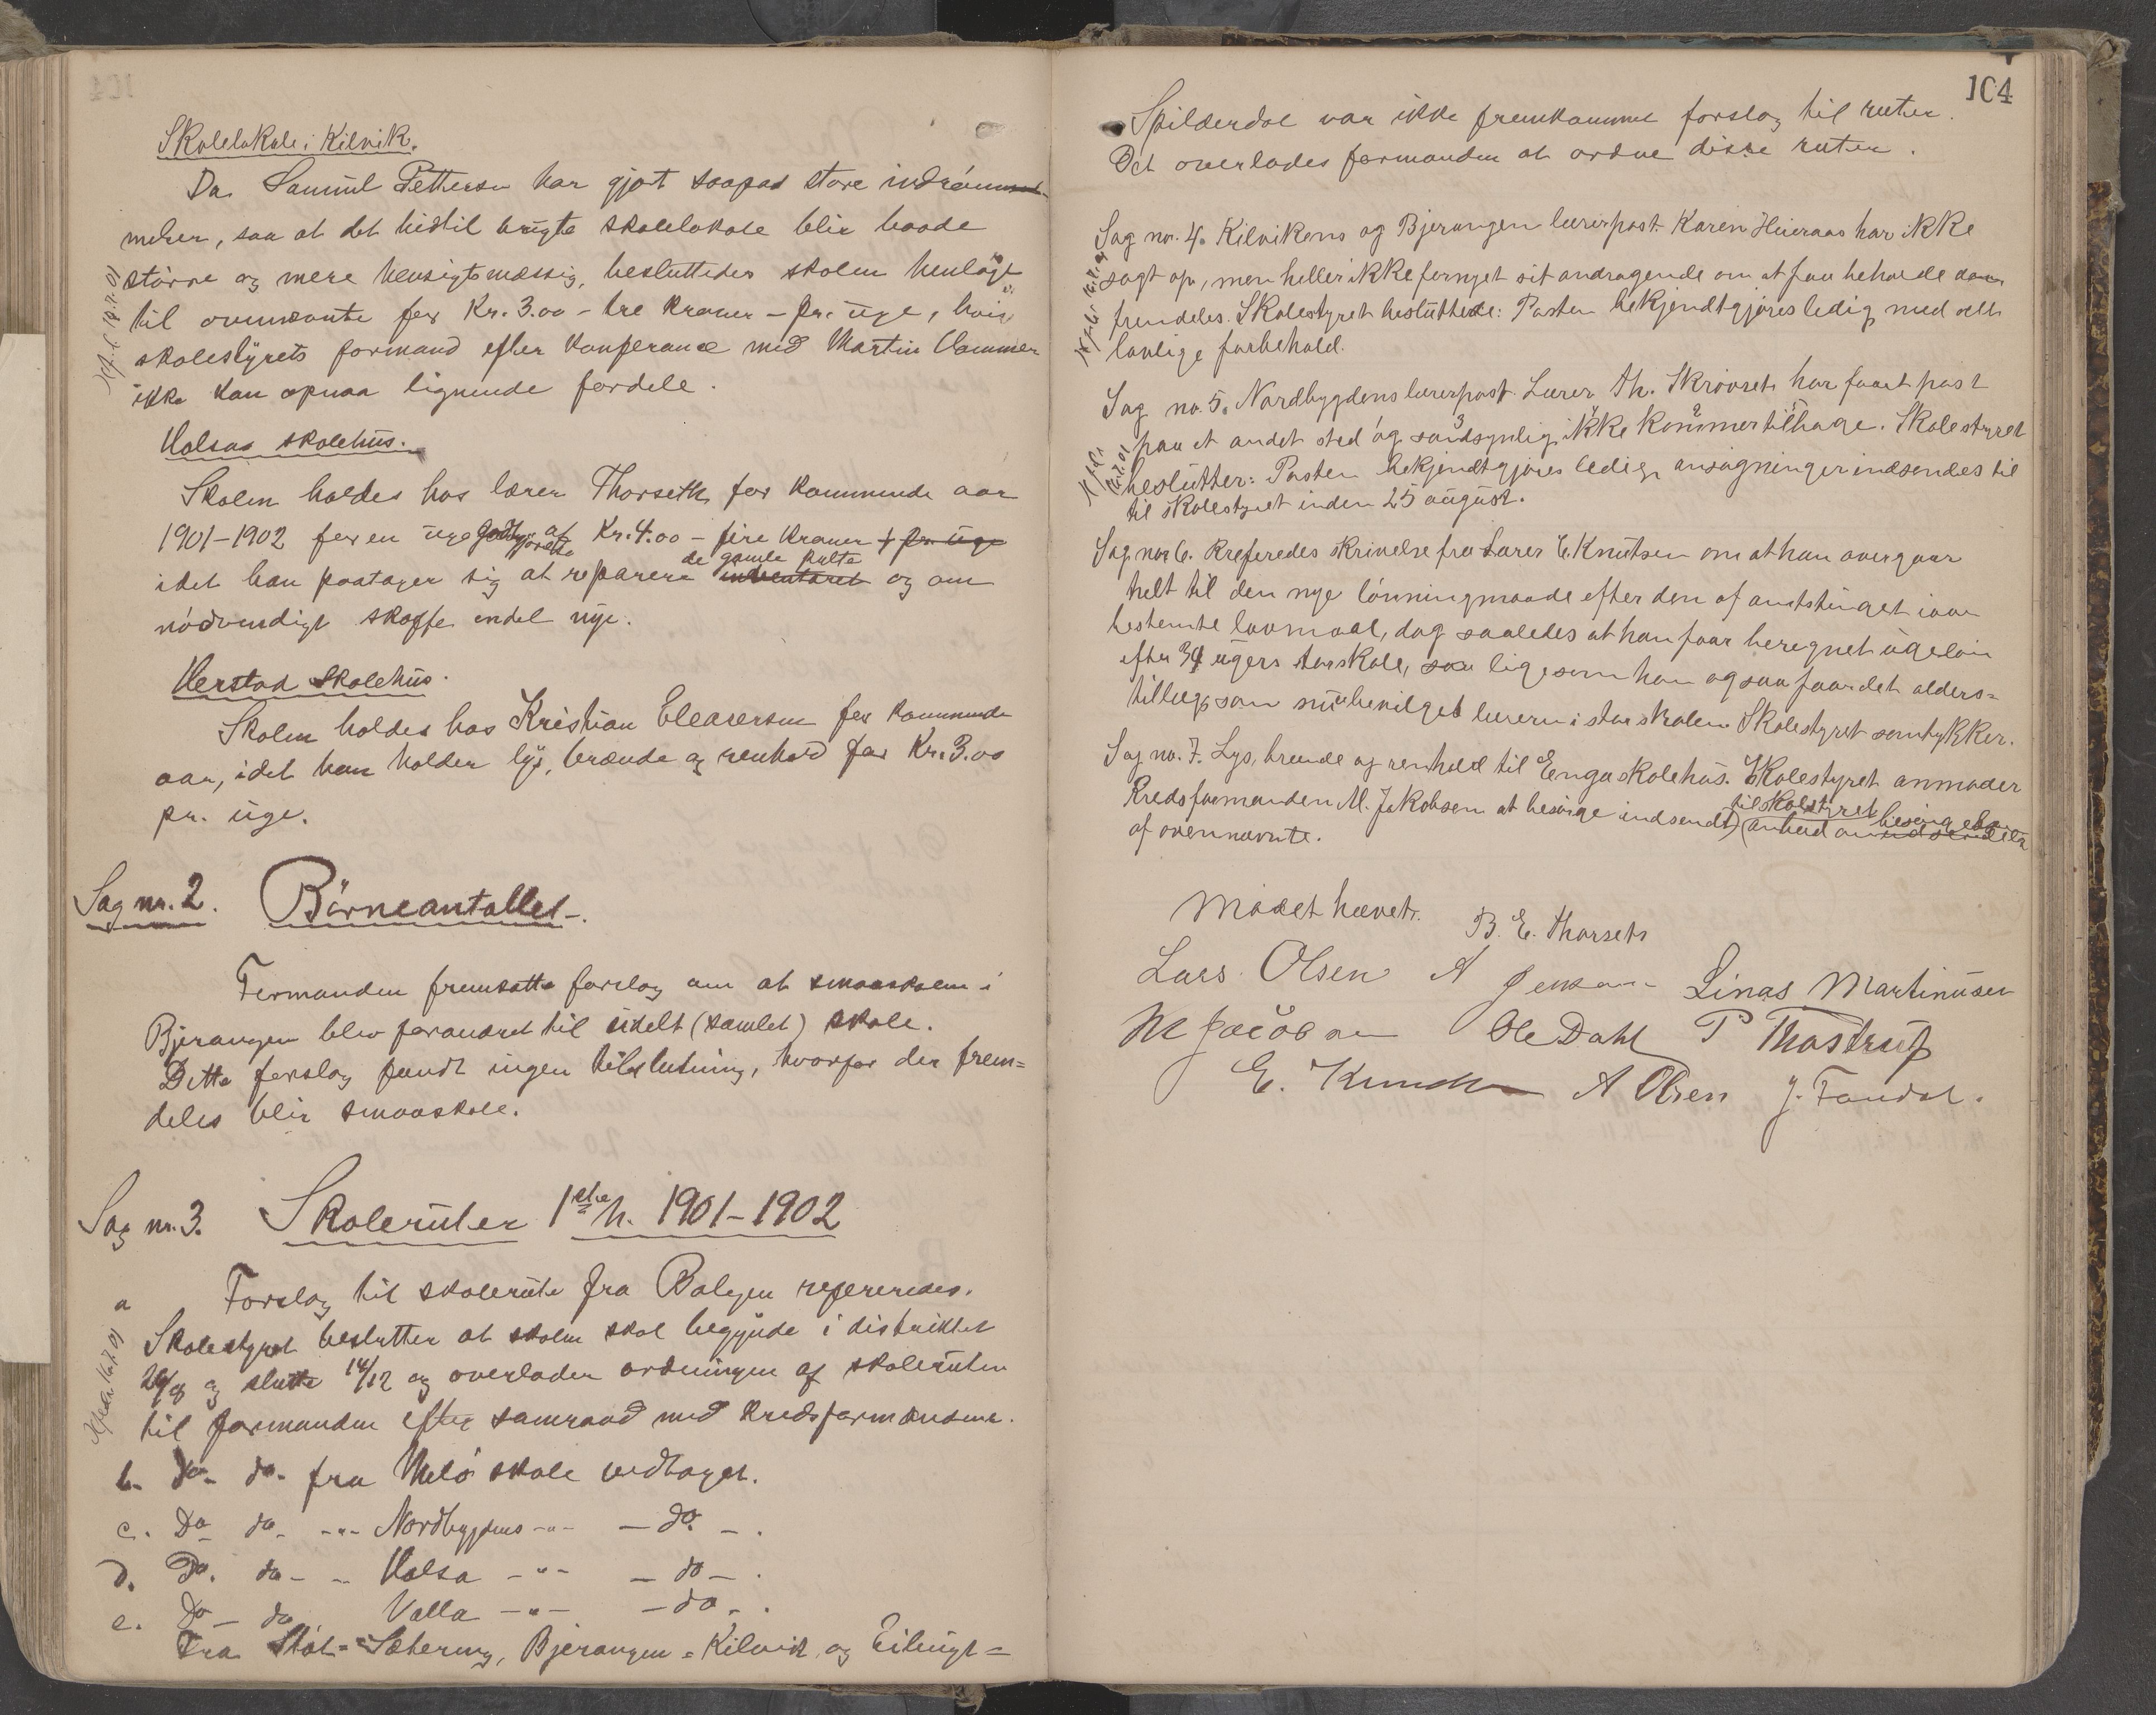 Skolelokale i Kilvik.
Da Samuel Petterse har gjort saapas store indrömmel-
melser, saa at det hidtil brugte skolelokale blir baade
større og mere hensigtsmæssig, besluttedes skolen henlagt
til ovennævnte for Kr. 3.00 – tre kroner – pr. uge, hvis
skolestyrets formand efter konferance med Martin Hammer
ikke kan opnaa lignende fordele.
Halsas skolehus.
Skolen holdes hos lærer Thorseth for kommende aar
1901–1902 for en uge godtgjørelse af Kr. 4.00 – fire kroner + pr. uge
idet han paatager sig at reparere inventaret de gamle pulte og om
nödvendigt skaffe endel nye.
Herstad skolehus.
Skolen holdes hos Kristian Eleasersen for kommende
aar, idet han holder lys, brænde og renhold for Kr. 3.00
pr. uge.
Sag nr. 2. Börneantallet.
Formanden fremsatte forslag om at smaaskolen i
Bjerangen blev forandret til udelt (samlet) skole.
Dette forslag fandt ingen tilslutning, hvorfor der frem=
deles blir smaaskole.
Sag nr. 3. Skoleruter 1ste h. 1901–1902
a Forslag til skolerute fra Bolgen refereredes.
Skolestyret beslutter at skolen skal begynde i distriktet
26/8 og slutte 14/12 og overlader ordningen af skoleruten
til formanden efter samraad med kredsformændene.
b. do- do- fra Melö skole vedtaget.
c. Do do- -"- Nordbygdens -"- – do. – .
d. Do. do- - Halsa -"- – do – .
e. Do – do Valla -"- – do – .
Fra Stöt = Sætering, Bjerangen = Kilvik og Eiling =
104
Spilderdal var ikke fremkommet forslag til ruter.
Det overlades formanden at ordne disse ruter.
Sag no. 4. Kilvikens og Bjerangen lærerpost. Karen Hueraas har ikke
sagt op, men heller ikke fornyet sit andragende om at faa beholde den
fremdeles. Skolestyret besluttede: Posten bekjendtgjøres ledig med vélt
lovlige forbehold.
Sag no. 5. Nordbygdens lærerpost. Lærer Th. Skrovset har faaet post
paa et andet sted og sandsynlig ikke kommer tilbage. Skolestyret
beslutter: Posten bekjendtgjøres ledig, ansøgninger indsendes til
til skolestyret inden 25 august.
Sag no. 6. Refereredes skrivelse fra Lærer E. Knutsen om at han overgaar
helt til den nye lönningmaade efter den af amtstinget iaar
bestemte lovmaal, dog saaledes at han faar beregnet ugelön
efter 34 ugers storskole, saa ligesom han ogsaa faar det alders=
tillæg, som nu bevilget læreren i storskolen. Skolestyret samtykker.
Sag no. 7. Lys, brende og renhold til Enga skolehus. Skolestyret anmoder
Kredsformanden M. Jakobsen at besörge indsendt til skolestyret anbud om besörgelse
af ovennævnte.
Mødet hævet. B. E. Thorseth
Lars Olsen A Jensen Linas Martinusen
M Jacobsen Ole Dahl P Thostrup
E. Knudsen A Olsen J. Fondal.